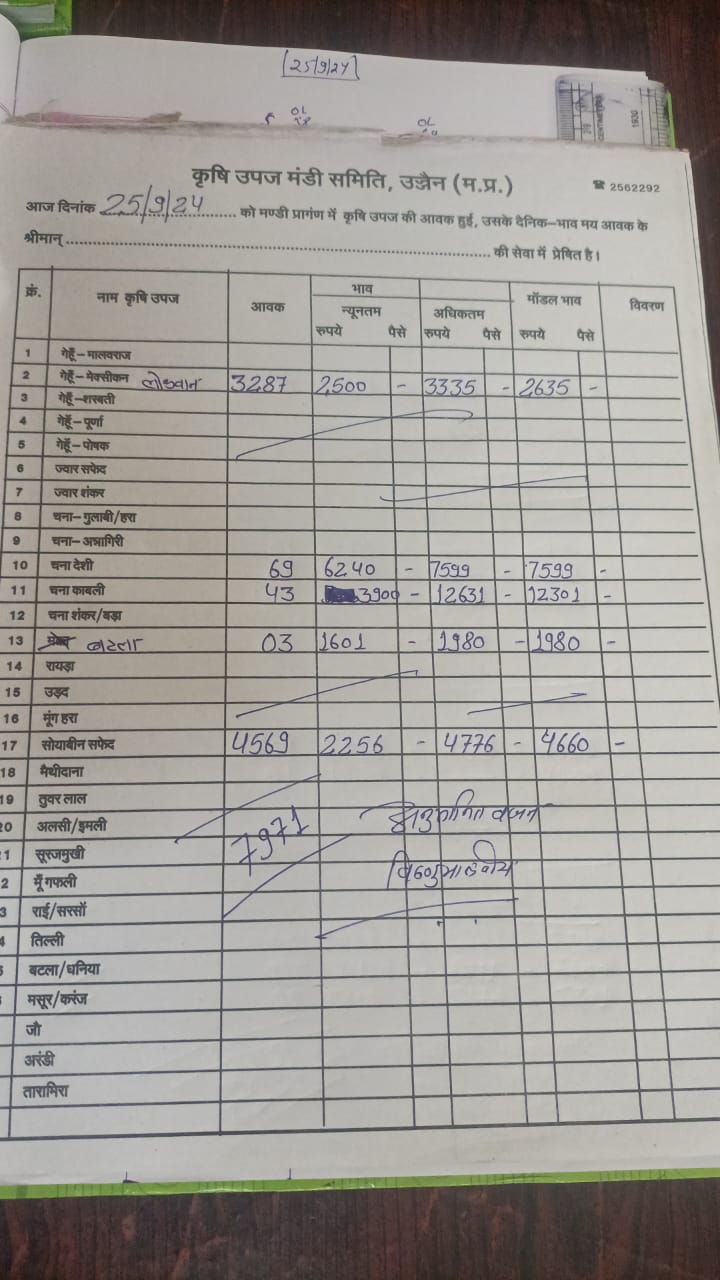 25/9/24
कृषि उपज मंडी समिति, उज्जैन (म.प्र.) ☎ 2562292
आज दिनांक 25/9/24 को मण्डी प्रागंण में कृषि उपज की आवक हुई, उसके दैनिक–भाव मय आवक के
श्रीमान् की सेवा में प्रेषित है।
क्रं. नाम कृषि उपज आवक भाव मॉडल भाव विवरण
न्यूनतम अधिकतम
रुपये पैसे रुपये पैसे रुपये पैसे
1 गेहूँ–मालवराज
2 गेहूँ–मेक्सीकन लोकवान 3287 2500 – 3335 – 2635 –
3 गेहूँ–शरबती
4 गेहूँ–पूर्णा
5 गेहूँ–पोषक
6 ज्वार सफेद
7 ज्वार शंकर
8 चना–गुलाबी/हरा
9 चना–अन्नागिरी
10 चना देशी 69 6240 – 7599 – 7599 –
11 चना काबली 43 3900 – 12631 – 12301 –
12 चना शंकर/बड़ा
13 बटला 03 1601 – 1980 – 1980 –
14 रायड़ा
15 उड़द
16 मूंग हरा
17 सोयाबीन सफेद 4569 2256 – 4776 – 4660 –
18 मैथीदाना
19 तुवर लाल
20 अलसी/इमली 7971 अनुमानित वजन
1 सूरजमुखी
2 मूँगफली
3 राई/सरसों
4 तिल्ली
बटला/धनिया
मसूर/करंज
जौ
अरंडी
तारामिरा